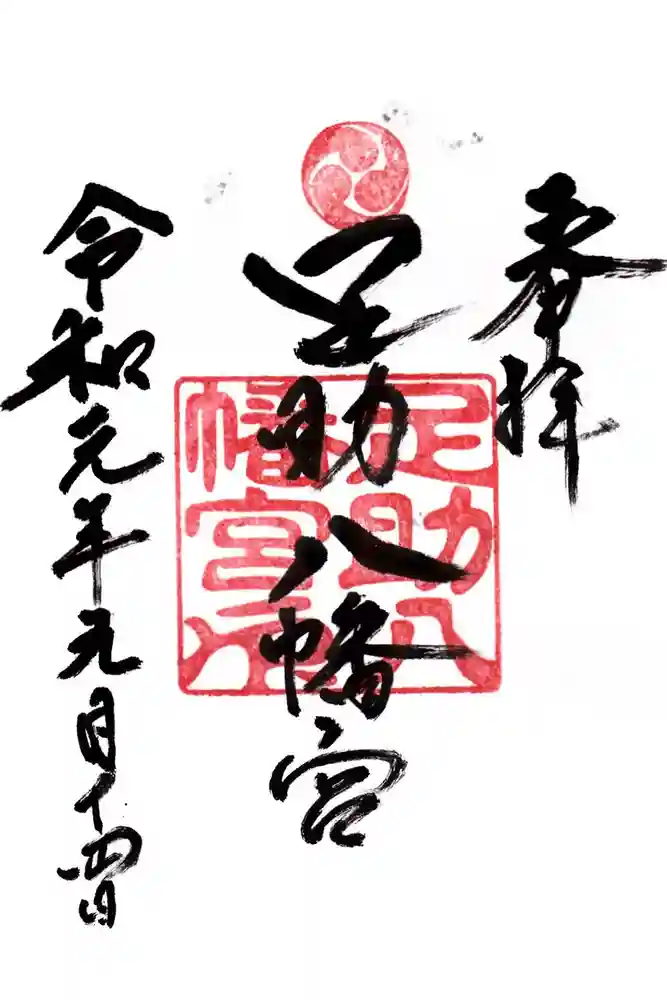 奉拝
足助八幡宮
令和元年九月十四日
足助八
幡宮